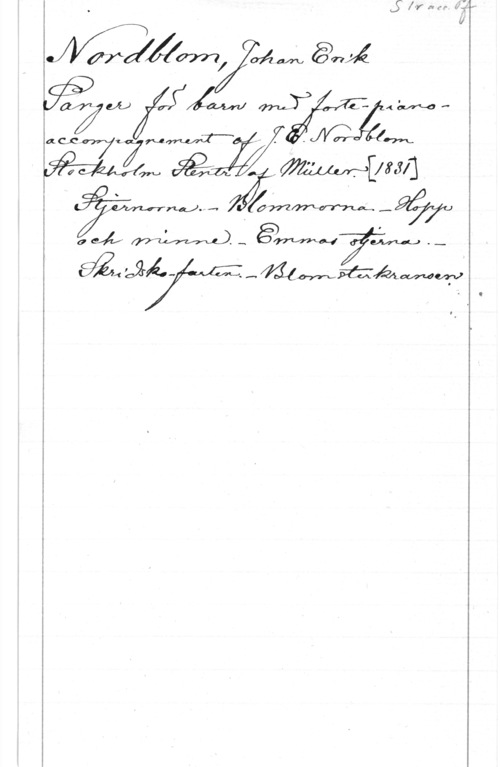 Nordblom, Johan Erik
Sånger för barn med forte-piano-
accompagnement af J. E. Nordblom
Stockholm Stentr. af Müller. [1831]
Stjernorna. - Blommorna. - Hopp
och minne. - Emmas stjerna. -
Skridsko-farten. - Blomsterkransen.